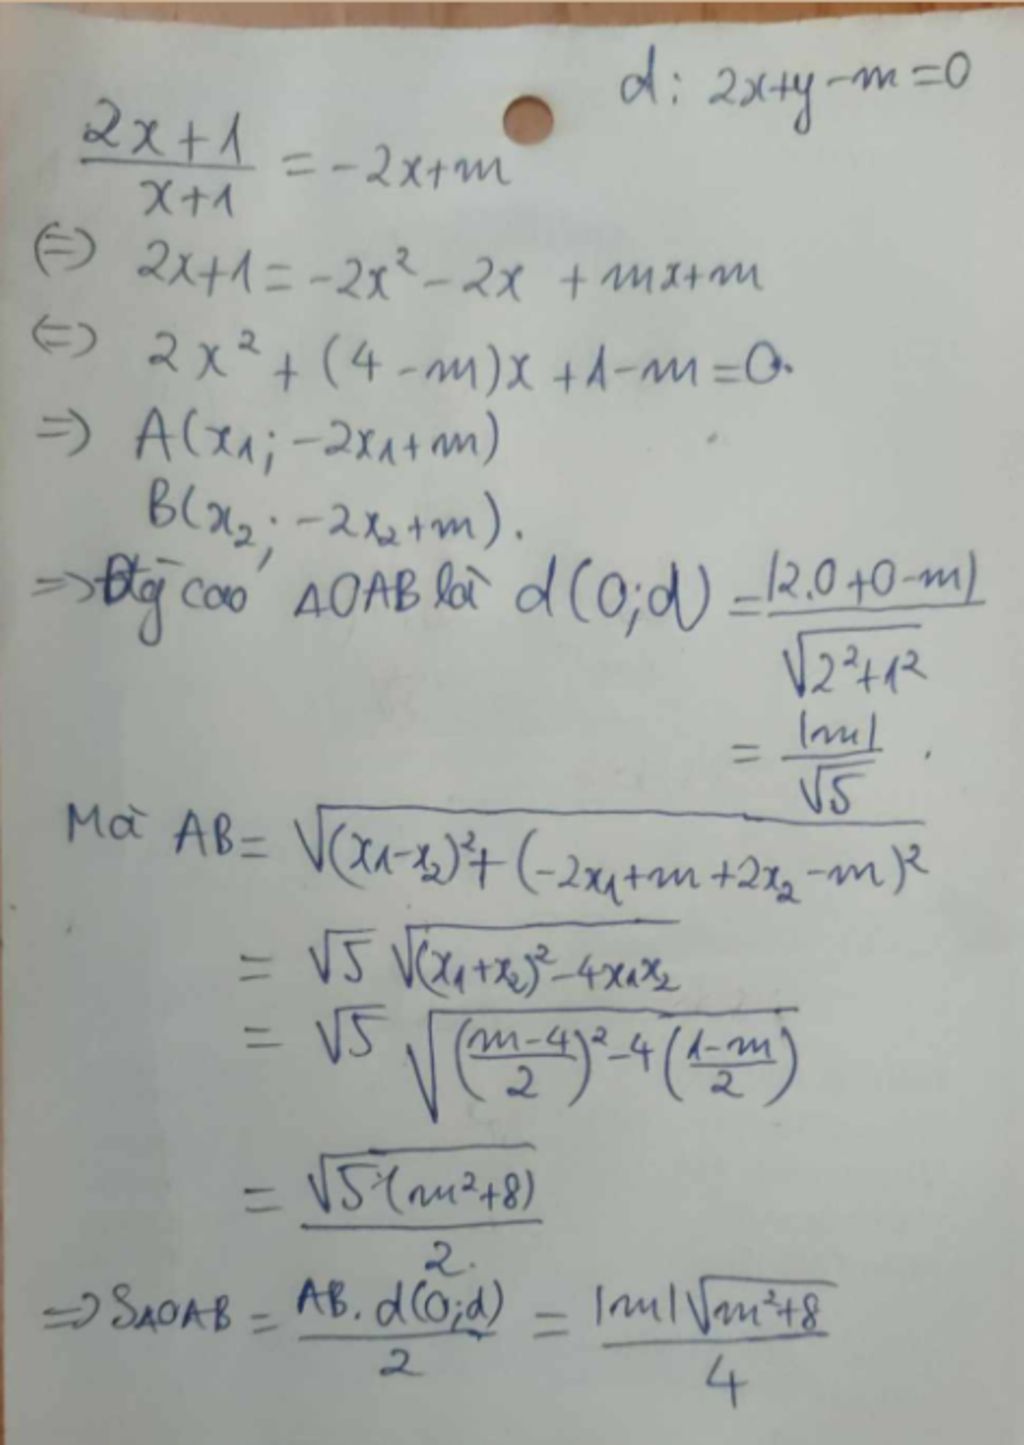 d: 2x+y-m=0
(2x+1)/(x+1) = -2x+m
(=) 2x+1 = -2x² - 2x + mx+m
(=) 2x² + (4-m)x + 1-m = 0.
=) A(x₁; -2x₁+m)
B(x₂; -2x₂+m).
=> Đg cao ΔOAB là d(O;d) = |2.0+0-m|/√(2²+1²)
= |m|/√5 .
Mà AB = √((x₁-x₂)² + (-2x₁+m+2x₂-m)²)
= √5 √((x₁+x₂)² - 4x₁x₂)
= √5 √(((m-4)/2)² - 4((1-m)/2))
= √(5·(m²+8))/2.
=> SΔOAB = AB.d(O;d)/2 = |m|√(m²+8)/4